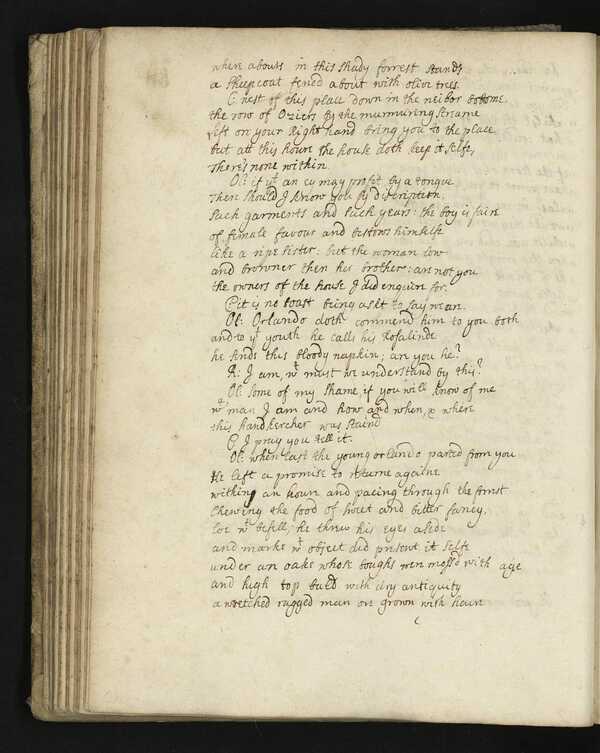 where abouts in this shady forrest stands
a sheepcoat fenced about with olive trees.
C. west of this place down in the neibor bottome
the row of Oziers by the murmuring streame
left on your Right hand bring you to the place
but att this houre the house doth keep it selfe,
there's none within.
Ol: if yt an ey may profit by a tongue
then should I know you by discription.
such garments and such years: the boy is fair
of female favour and bestows himselfe
like a ripe sister: but the woman low
and browner then her brother: are not you
the owners of the house I did enquire for.
C. it is no boast being askt to say we are.
Ol: Orlando doth commend him to you both
and to yt youth he calls his Rosalinde
he sends this bloody napkin; are you he?
R: I am, wt must we understand by this?
Ol: some of my shame, if you will know of me
wt man I am and how and when, & where
this handkercher was staind
C. I pray you tell it.
Ol: when last the young orlando parted from you
He left a promise to returne againe
within an houre and pacing through the forrest
Chewing the food of sweet and bitter fancy.
loe wt befell; he threw his eyes aside
and marke wt object did present it selfe
under an oake whose boughs were moss'd with age
and high top bald with dry antiquity
a wretched ragged man ore grown with haire